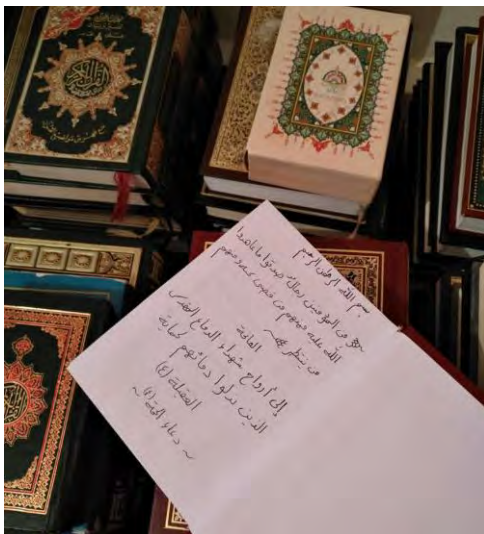 القرآن الكريم
بسم الله الرحمن الرحيم
من المؤمنين رجال صدقوا ما عاهدوا
الله عليه فمنهم من قضى نحبه ومنهم
من ينتظر
الفاتحة
إلى أرواح شهداء الدفاع المقدس
الذين بذلوا دمائهم لحماية
العقيلة (ع)
~ دعاء